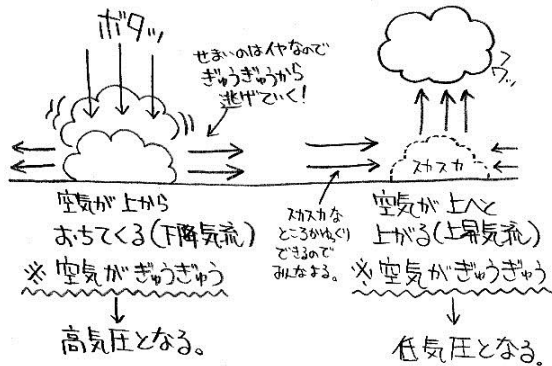 ボタッ
せまいのはイヤなので
ぎゅうぎゅうから
逃げていく!
空気が上から
おちてくる(下降気流)
※空気がぎゅうぎゅう
高気圧となる。
スカスカな
ところがゆっくり
できるので
みんなよる。
フワッ
スカスカ
空気が上へと
上がる(上昇気流)
※空気がぎゅうぎゅう
低気圧となる。